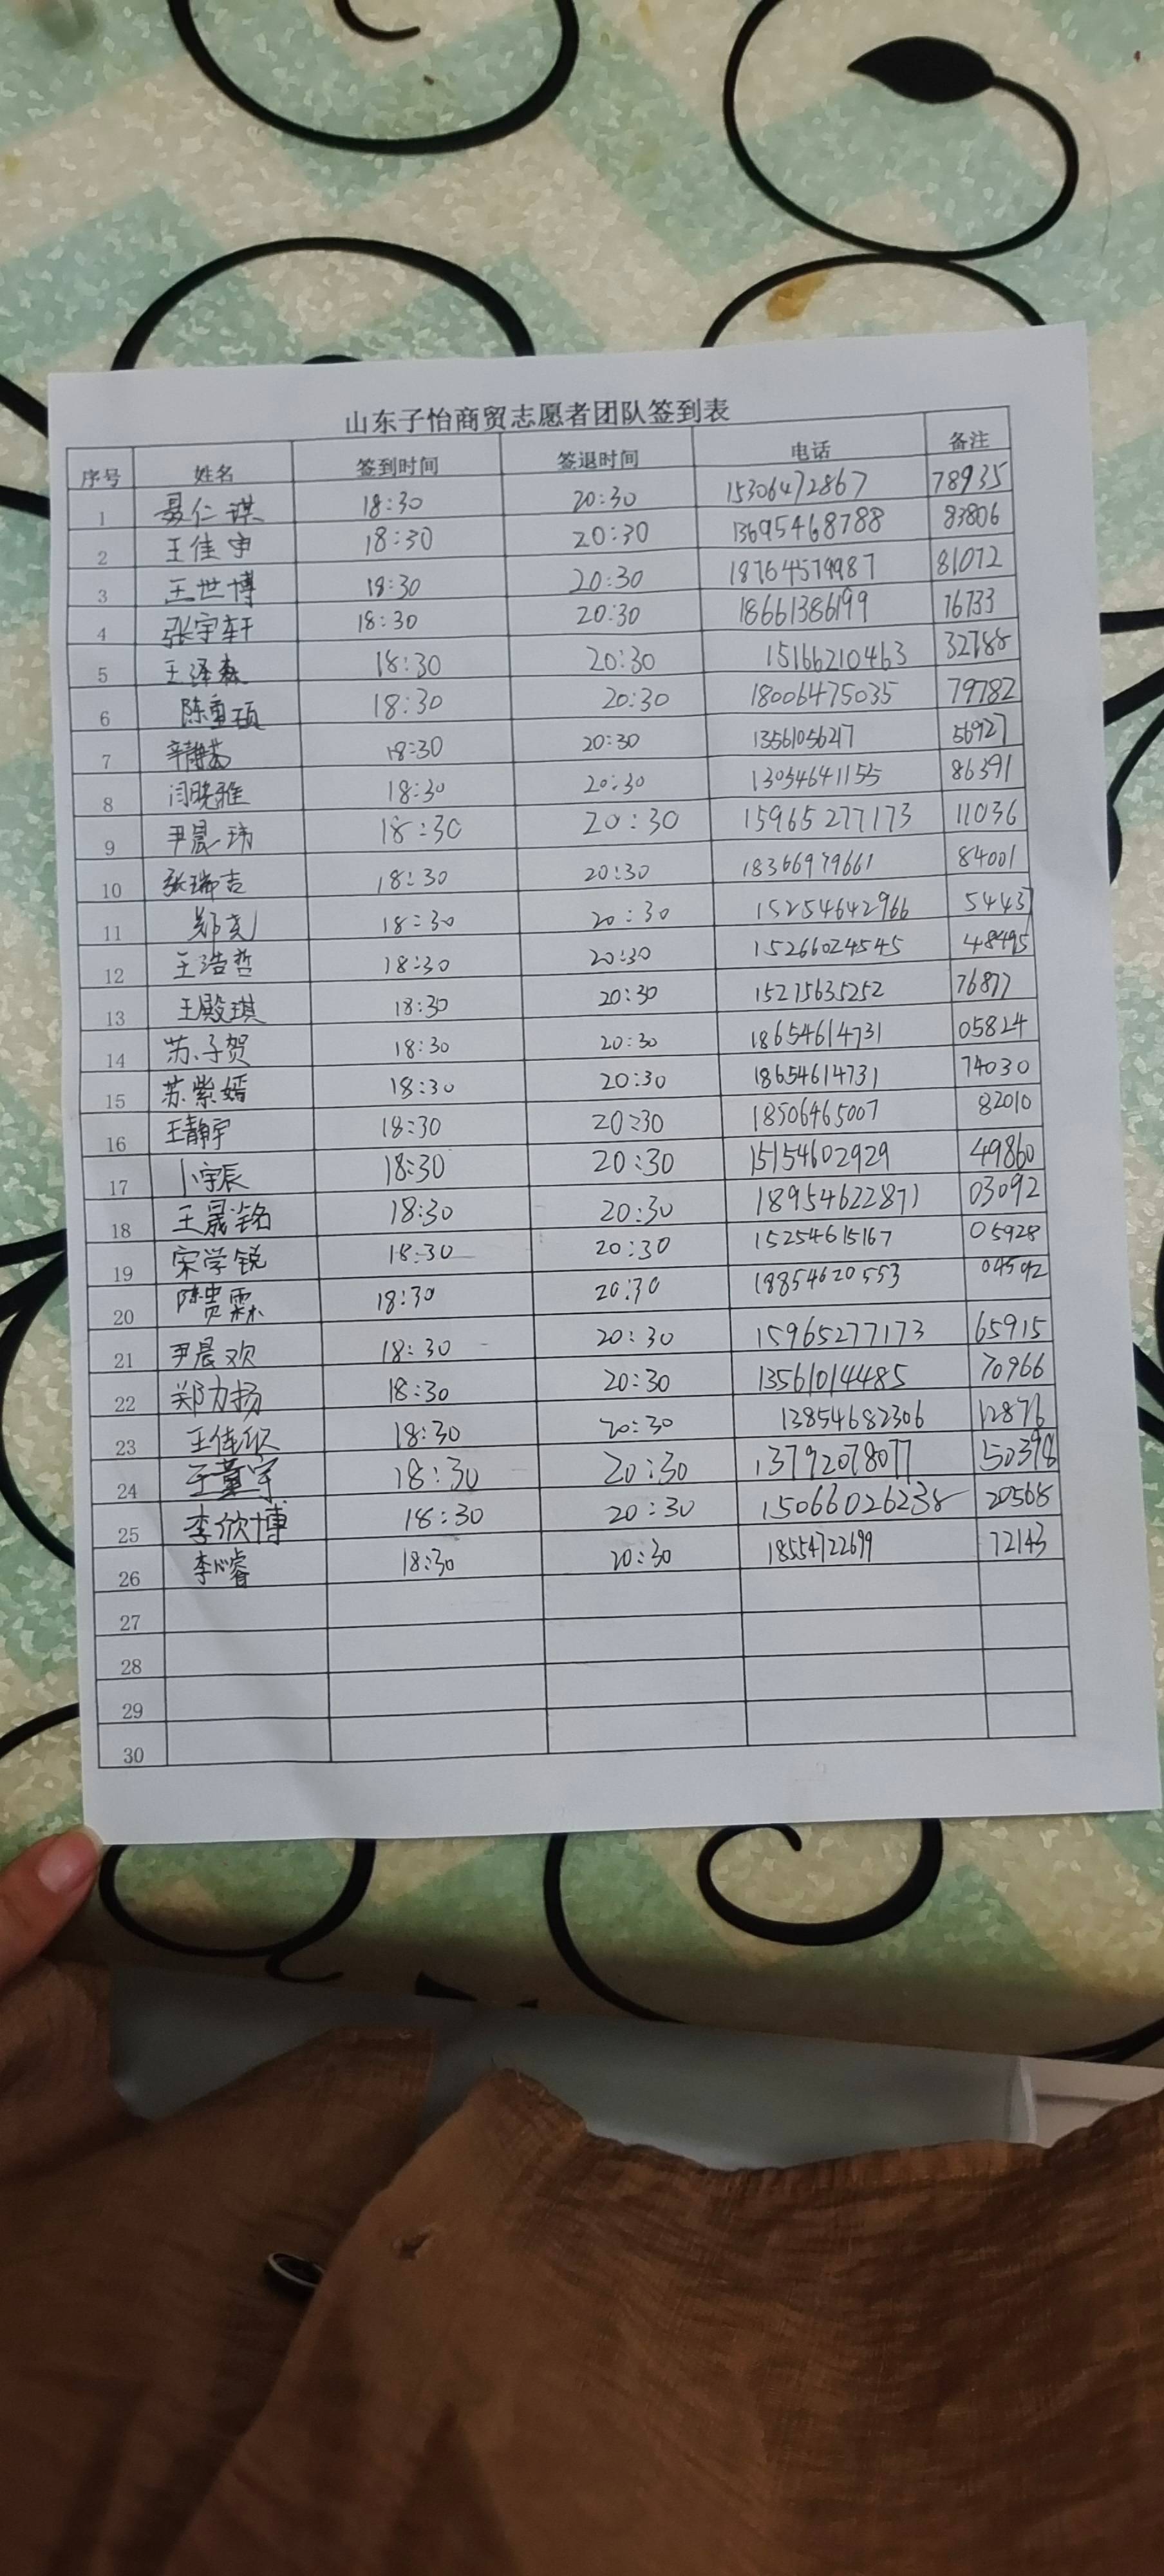 山东子怡商贸志愿者团队签到表
序号 姓名 签到时间 签退时间 电话 备注
1 聂仁琪 18:30 20:30 15306472867 78935
2 王佳 18:30 20:30 13695468788 83806
3 王世博 18:30 20:30 18764579987 81072
4 张宇轩 18:30 20:30 18661386199 76733
5 王泽森 18:30 20:30 15166210463 32788
6 陈重硕 18:30 20:30 18006475035 79782
7 辛静茹 18:30 20:30 13561056217 56927
8 闫晓雅 18:30 20:30 13054641155 86391
9 尹晨玮 18:30 20:30 15965277173 11036
10 张瑞吉 18:30 20:30 18366979661 84001
11 郑尧 18:30 20:30 15254642966 54437
12 王浩哲 18:30 20:30 15266024545 48495
13 王殿琪 18:30 20:30 15275635252 76877
14 苏子贺 18:30 20:30 18654614731 05824
15 苏紫嫣 18:30 20:30 18654614731 74030
16 王静宇 18:30 20:30 18506465007 82010
17 卜宇辰 18:30 20:30 15154602929 49860
18 王晟铭 18:30 20:30 18954622871 03092
19 宋学锐 18:30 20:30 15254615167 05928
20 陈贵霖 18:30 20:30 18854620553 04592
21 尹晨欢 18:30 20:30 15965277173 65915
22 郑力扬 18:30 20:30 13561014485 70966
23 王佳欣 18:30 20:30 13854682306 12876
24 王童宇 18:30 20:30 13792078077 50398
25 李欣博 18:30 20:30 15066026238 20568
26 李心睿 18:30 20:30 18554722699 72143
27
28
29
30